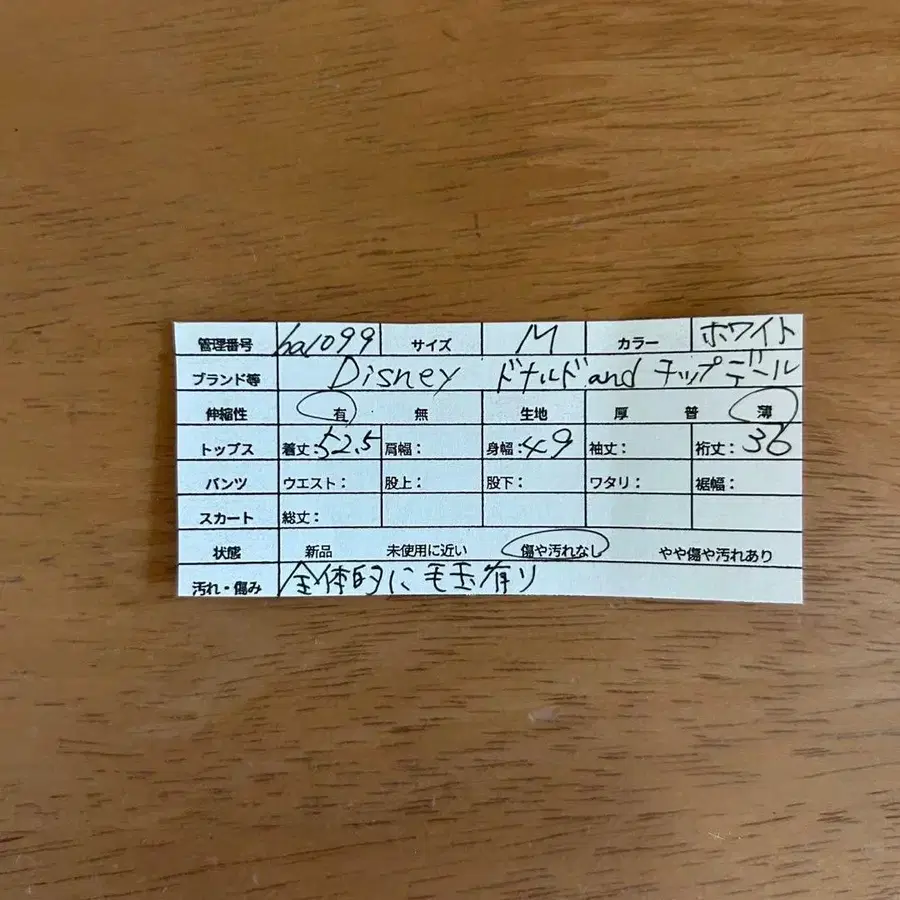 管理番号 ha1099 サイズ M カラー ホワイト
ブランド等 Disney ドナルドand チップデール
伸縮性 有 無 生地 厚 普 薄
トップス 着丈:52.5 肩幅: 身幅:49 袖丈: 裄丈:36
パンツ ウエスト: 股上: 股下: ワタリ: 裾幅:
スカート 総丈:
状態 新品 未使用に近い 傷や汚れなし やや傷や汚れあり
汚れ・傷み 全体的に毛玉有り